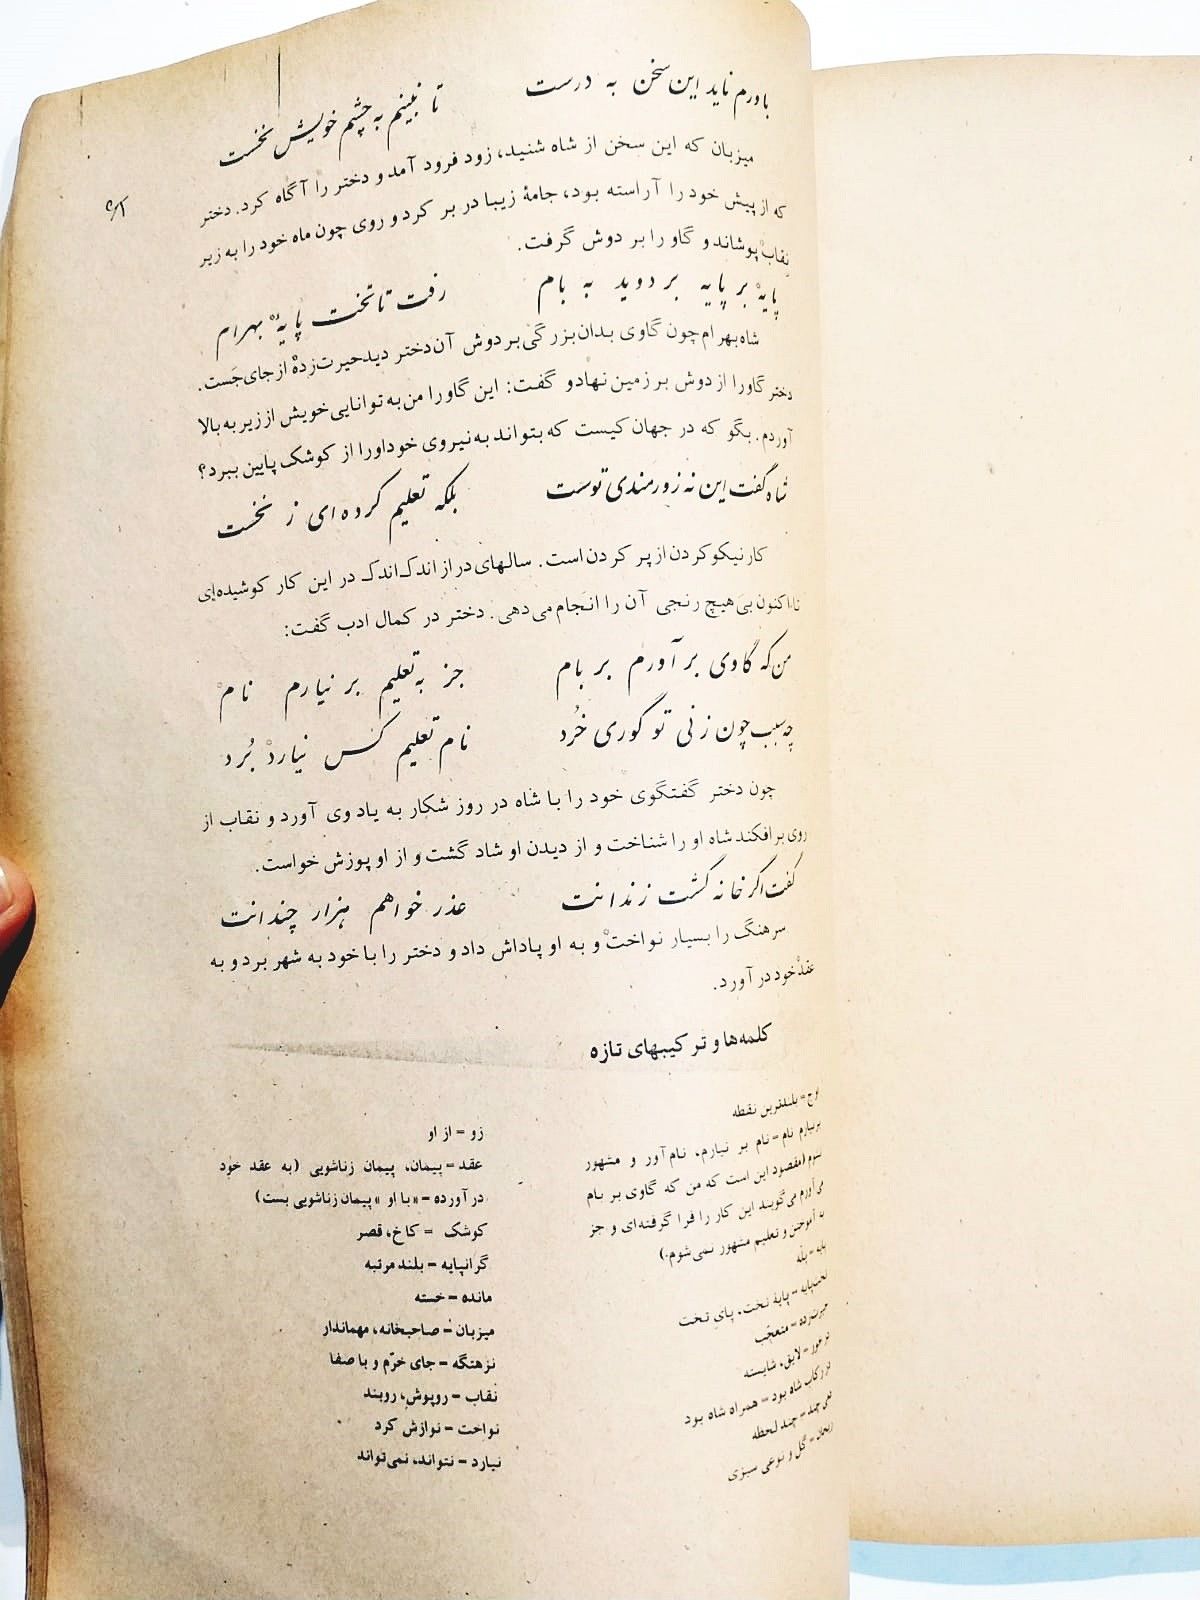 باورم ناید این سخن به درست
تا نبینم به چشم خویش نخست
میزبان که این سخن از شاه شنید، زود فرود آمد و دختر را آگاه کرد. دختر
که از پیش خود را آراسته بود، جامهٔ زیبا در بر کرد و روی چون ماه خود را به زیر
نقاب پوشاند و گاو را بر دوش گرفت.
پایه بر پایه بر دوید به بام
رفت تا تخت پایهٔ بهرام
شاه بهرام چون گاوی بدان بزرگی بر دوش آن دختر دید حیرت‌زده از جای جَست.
دختر گاو را از دوش بر زمین نهاد و گفت: این گاو را من به توانایی خویش از زیر به بالا
آوردم. بگو که در جهان کیست که بتواند به نیروی خود او را از کوشک پایین ببرد؟
شاه گفت این نه زورمندی توست
بلکه تعلیم کرده‌ای ز نخست
کار نیکو کردن از پر کردن است. سالهای دراز اندک اندک در این کار کوشیده‌ای
تا اکنون بی هیچ رنجی آن را انجام می‌دهی. دختر در کمال ادب گفت:
من که گاوی بر آورم بر بام
جز به تعلیم بر نیارم نام
چه سبب چون زنی تو گوری خُرد
نام تعلیم کس نیارد بُرد
چون دختر گفتگوی خود را با شاه در روز شکار به یاد وی آورد و نقاب از
روی برافکند شاه او را شناخت و از دیدن او شاد گشت و از او پوزش خواست.
گفت اگر خانه گشت زندانت
عذر خواهم هزار چندانت
سرهنگ را بسیار نواخت و به او پاداش داد و دختر را با خود به شهر برد و به
عقد خود در آورد.
کلمه‌ها و ترکیبهای تازه
اوج = بلندترین نقطه
برنیارم نام = نام بر نیارم، نام‌آور و مشهور
نشوم (مقصود این است که من که گاوی بر بام
می‌آورم می‌گویند این کار را فرا گرفته‌ای و جز
به آموختن و تعلیم مشهور نمی‌شوم.)
پایه = پله
تخت‌پایه = پایهٔ تخت، پای تخت
حیرت‌زده = متعجّب
درخور = لایق، شایسته
در رکاب شاه بود = همراه شاه بود
دمی چند = چند لحظه
ریحان = گل و نوعی سبزی
زو = از او
عقد = پیمان، پیمان زناشویی (به عقد خود
در آورده = «با او» پیمان زناشویی بست)
کوشک = کاخ، قصر
گرانپایه = بلند مرتبه
مانده = خسته
میزبان = صاحبخانه، مهماندار
نزهتگه = جای خرّم و با صفا
نقاب = روپوش، روبند
نواخت = نوازش کرد
نیارد = نتواند، نمی‌تواند